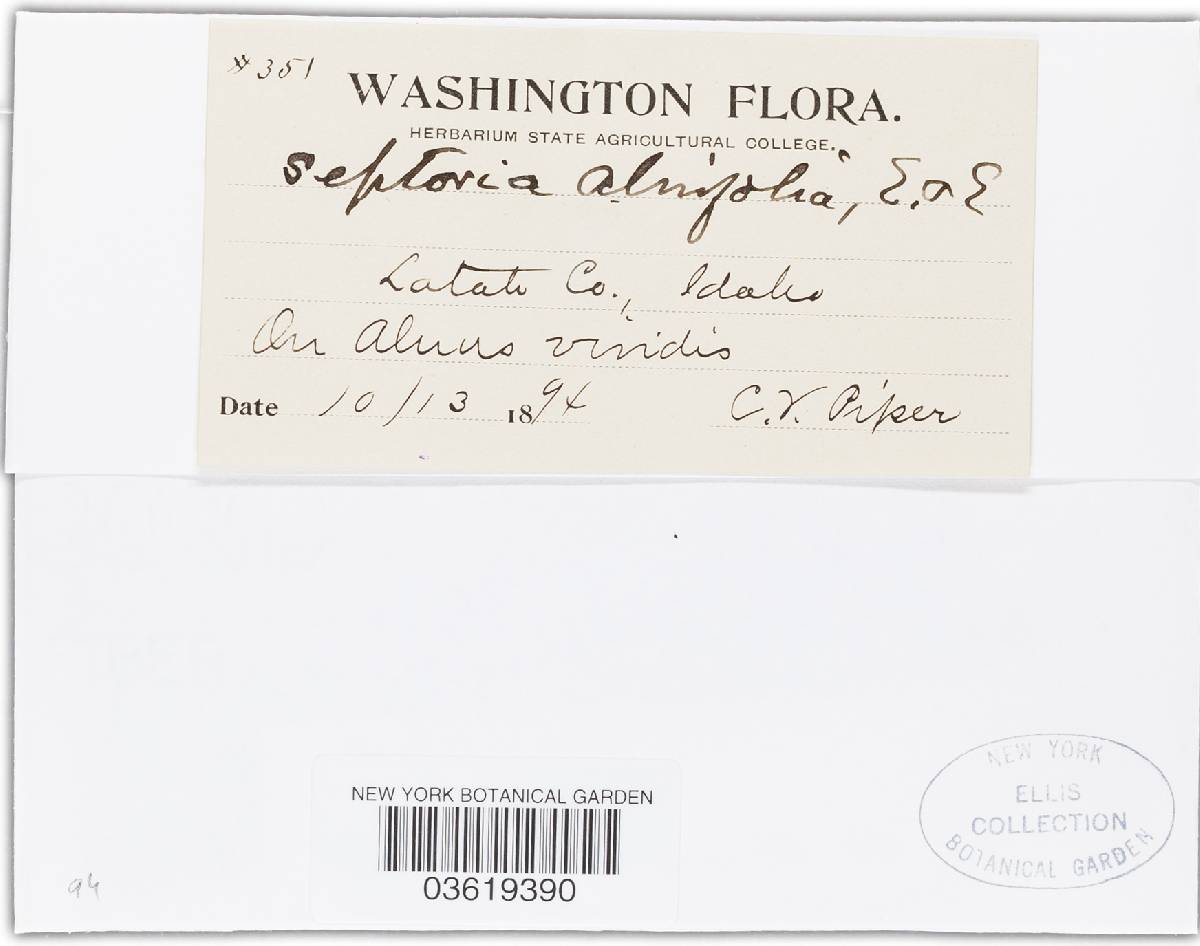 #351
WASHINGTON FLORA.
HERBARIUM STATE AGRICULTURAL COLLEGE.
Septoria alnifolia, E. & E
Latah Co., Idaho
On Alnus viridis
Date 10/13 1894 C. V. Piper
NEW YORK BOTANICAL GARDEN
03619390
NEW YORK
ELLIS
COLLECTION
BOTANICAL GARDEN
94